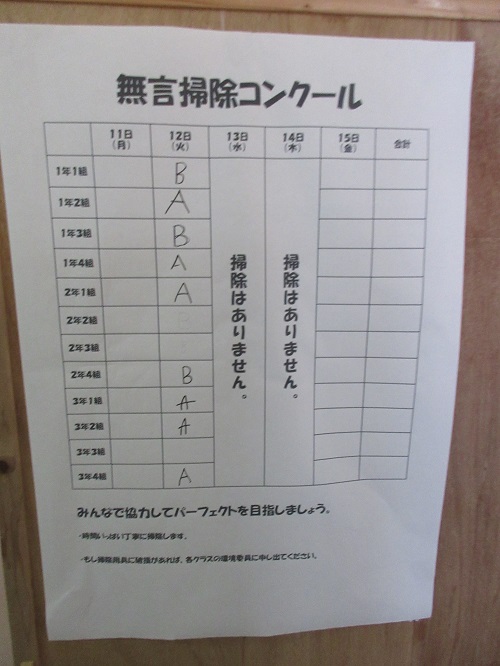 無言掃除コンクール
11日 12日 13日 14日 15日 合計
(月) (火) (水) (木) (金)
1年1組 B
1年2組 A
1年3組 B
1年4組 A
2年1組 A
2年2組
2年3組
2年4組 B
3年1組 A
3年2組 A
3年3組
3年4組 A
掃除はありません。
掃除はありません。
みんなで協力してパーフェクトを目指しましょう。
・時間いっぱい丁寧に掃除します。
・もし掃除用具に破損があれば、各クラスの環境委員に申し出てください。